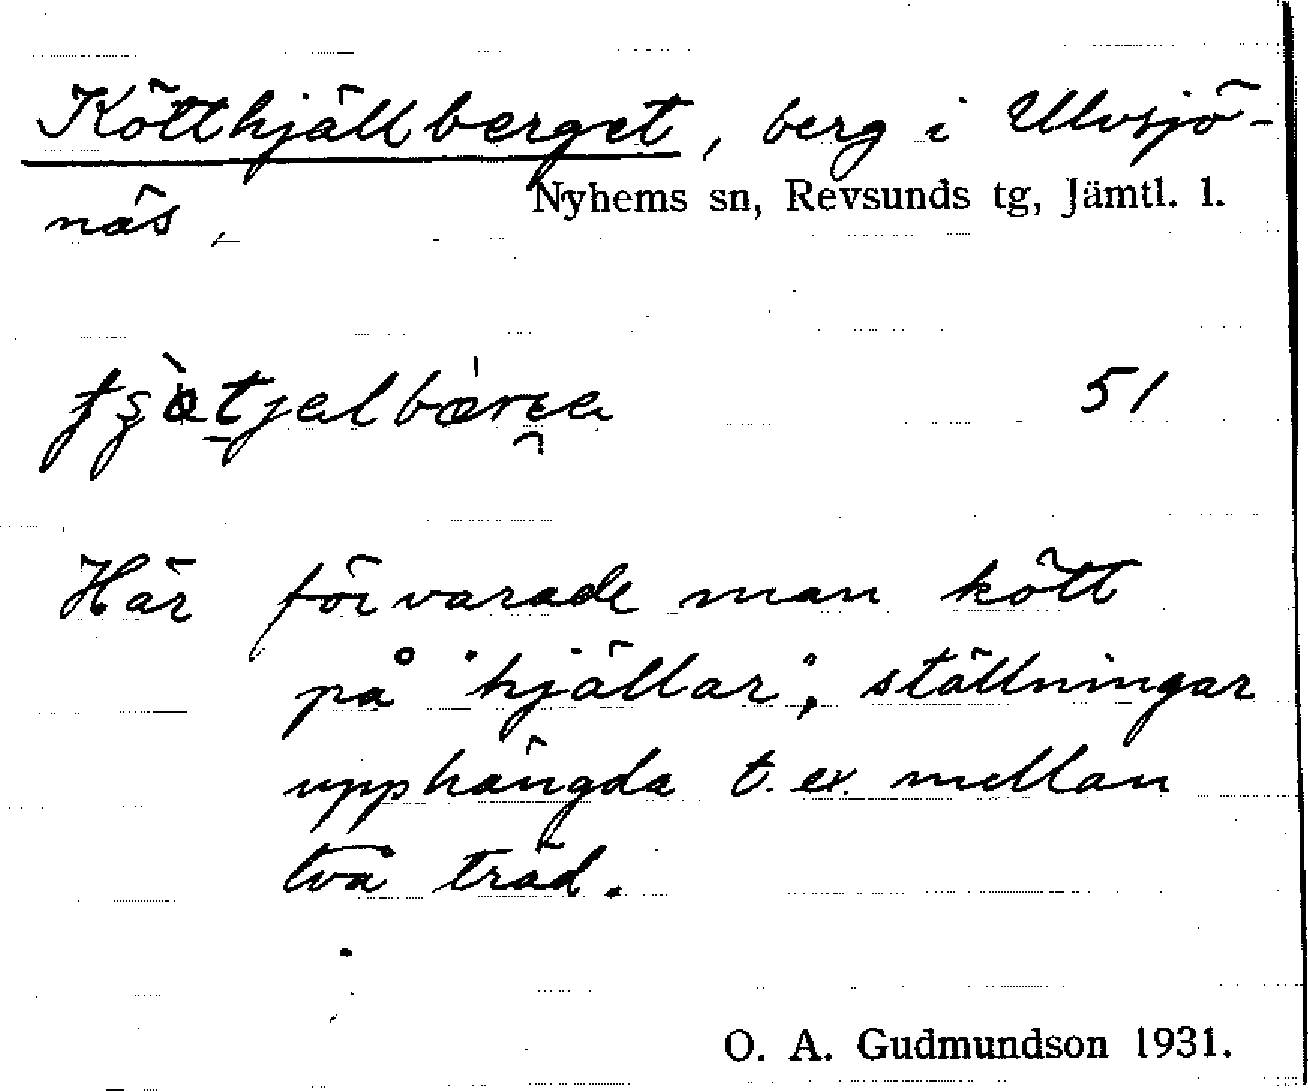 Kötthjällberget, berg i Ulvsjö-
näs.
Nyhems sn, Revsunds tg, Jämtl. l.
51
Här förvarade man kött
på "hjällar", ställningar
upphängda t. ex. mellan
två träd.
O. A. Gudmundson 1931.